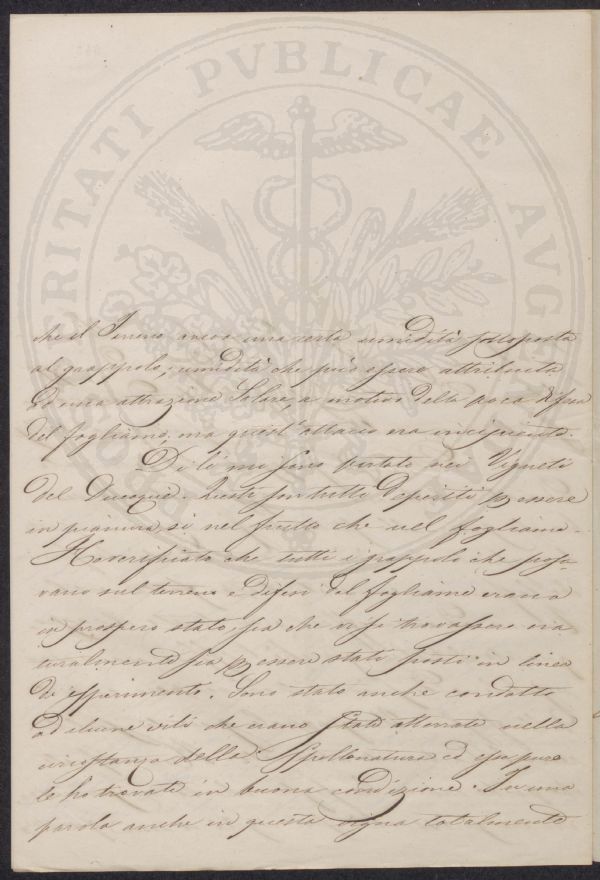 PROSPERITATI PVBLICAE AVGENDAE
che il Terreno aveva una certa umidità sottoposta
al grappolo; umidità che può essere attribuita
ad una attrazione Solare, a motivo della poca difesa
del fogliame, ma quest'attacco era incipiente.
Di lì mi sono portato nei Vigneti
del Questi son tutti deperiti p essere
in pianura si nel frutto che nel fogliame.
Ho verificato che tutti i grappoli che posa-
vano sul terreno e difesi del fogliame erano
in prospero stato, sia che vi si trovassero na
turalmente sia p essere stati posti in linea
di esperimento. Sono stato anche condotto
ad alcune viti che erano state atterrate nella
circostanza della Spollonatura ed esse pure
le ho trovate in buona condizione. In una
parola anche in questa vigna totalmente